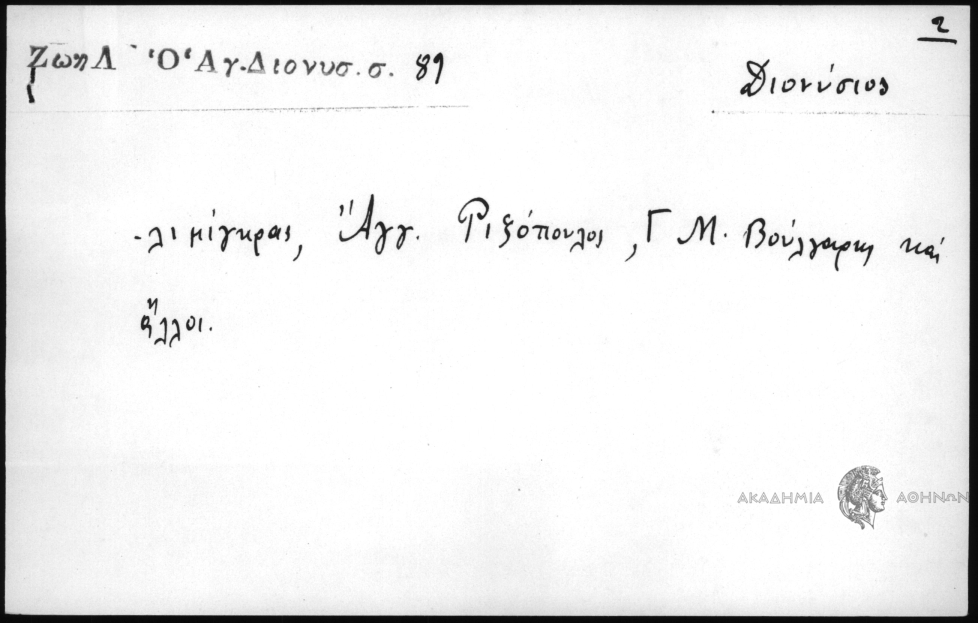 2
Ζωη Λ Ὁ Ἁγ. Διονυσ. σ. 89
Διονύσιος
-λιμίγκρας, Ἄγγ. Ριζόπουλος, Γ Μ. Βούλγαρης καὶ
ἄλλοι.
ΑΚΑΔΗΜΙΑ ΑΘΗΝΩΝ